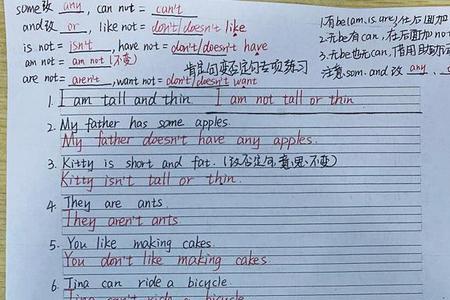 some改 any, can not = can't
and改 or, like not = don't/doesn't like
is not = isn't, have not = don't/doesn't have
am not = am not (不变)
are not = aren't, want not = don't/doesn't want
1.有be(am.is.are),在后面加
2.无be有can,在后面加not
3.无be也无can,借用助动
注意.som.and 改 any
肯定句变否定句专项练习
1. I am tall and thin I am not tall or thin
2. My father has some apples.
My father doesn't have any apples.
3. Kitty is short and fat. (改否定句,意思不变)
Kitty isn't tall or thin.
4. They are ants.
They aren't ants
5. You like making cakes.
You don't like making cakes.
6. Tina can ride a bicycle.
Tina can't ride a bicycle